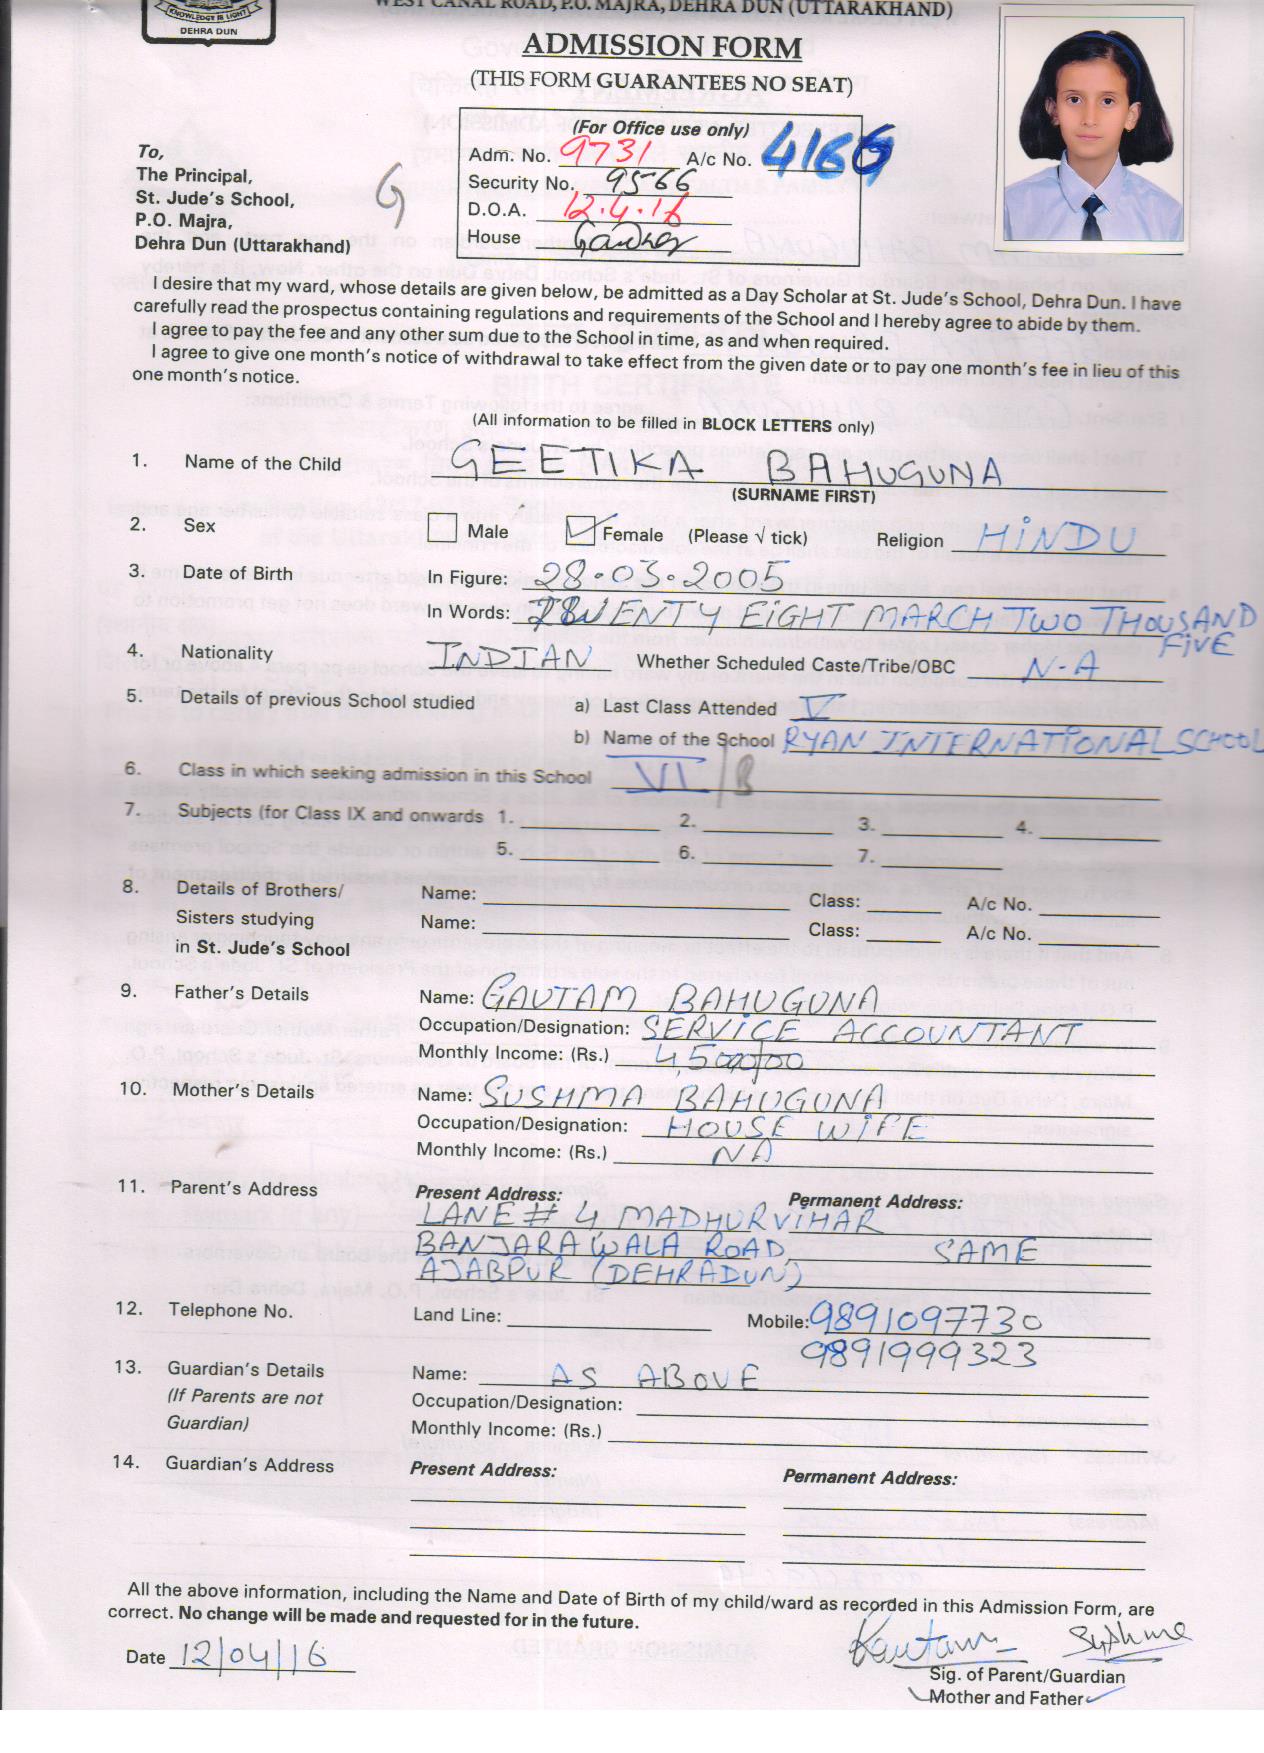 KNOWLEDGE IS LIGHT
DEHRA DUN
WEST CANAL ROAD, P.O. MAJRA, DEHRA DUN (UTTARAKHAND)
ADMISSION FORM
(THIS FORM GUARANTEES NO SEAT)
(For Office use only)
Adm. No. 9731 A/c No. 4166
Security No. 9566
D.O.A. 12.4.16
House
G
To,
The Principal,
St. Jude's School,
P.O. Majra,
Dehra Dun (Uttarakhand)
I desire that my ward, whose details are given below, be admitted as a Day Scholar at St. Jude's School, Dehra Dun. I have
carefully read the prospectus containing regulations and requirements of the School and I hereby agree to abide by them.
I agree to pay the fee and any other sum due to the School in time, as and when required.
I agree to give one month's notice of withdrawal to take effect from the given date or to pay one month's fee in lieu of this
one month's notice.
(All information to be filled in BLOCK LETTERS only)
1. Name of the Child GEETIKA BAHUGUNA
(SURNAME FIRST)
2. Sex Male Female (Please √ tick) Religion HINDU
3. Date of Birth In Figure: 28.03.2005
In Words: TWENTY EIGHT MARCH TWO THOUSAND
FIVE
4. Nationality INDIAN Whether Scheduled Caste/Tribe/OBC N-A
5. Details of previous School studied a) Last Class Attended V
b) Name of the School RYAN INTERNATIONAL SCHOOL
6. Class in which seeking admission in this School VI/B
7. Subjects (for Class IX and onwards 1. 2. 3. 4.
5. 6. 7.
8. Details of Brothers/ Name: Class: A/c No.
Sisters studying Name: Class: A/c No.
in St. Jude's School
9. Father's Details Name: GAUTAM BAHUGUNA
Occupation/Designation: SERVICE ACCOUNTANT
Monthly Income: (Rs.)
10. Mother's Details Name: SUSHMA BAHUGUNA
Occupation/Designation: HOUSE WIFE
Monthly Income: (Rs.) NA
11. Parent's Address Present Address: Permanent Address:
LANE # 4 MADHURVIHAR
BANJARAWALA ROAD, SAME
AJABPUR (DEHRADUN)
12. Telephone No. Land Line: Mobile: 9891097730
9891999323
13. Guardian's Details Name: AS ABOVE
(If Parents are not Occupation/Designation:
Guardian) Monthly Income: (Rs.)
14. Guardian's Address Present Address: Permanent Address:
All the above information, including the Name and Date of Birth of my child/ward as recorded in this Admission Form, are
correct. No change will be made and requested for in the future.
Date 12/04/16 Gautam Sushma
Sig. of Parent/Guardian
Mother and Father